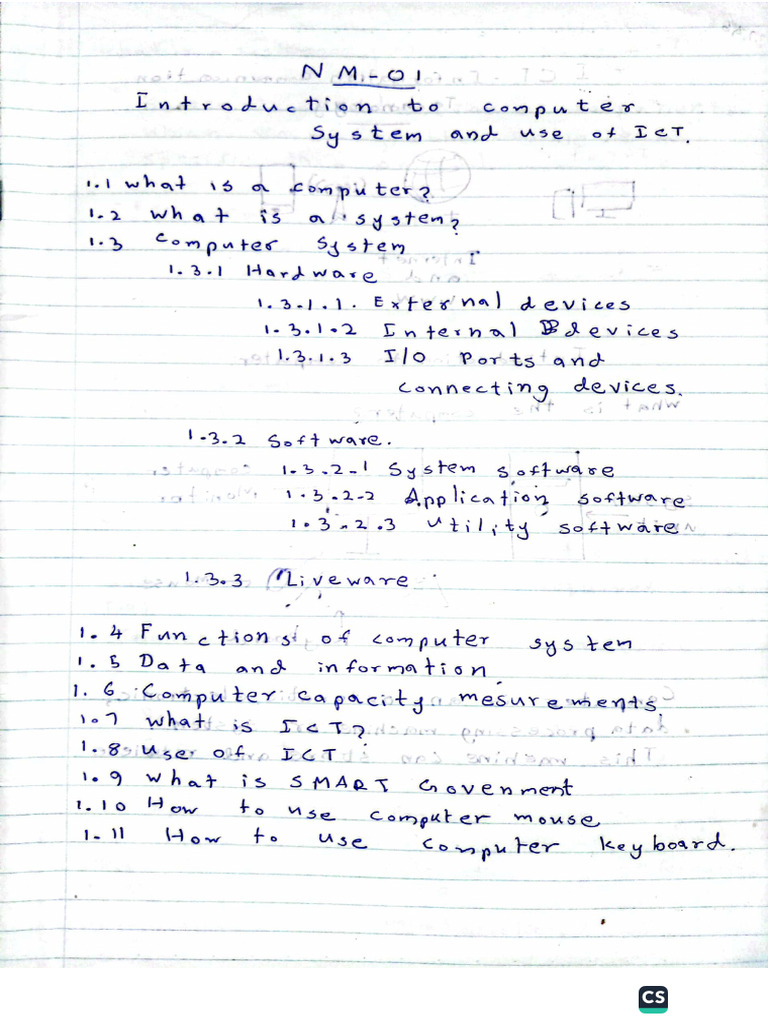 NM-01
Introduction to computer
System and use of ICT.
1.1 What is a computer?
1.2 What is a system?
1.3 Computer System
1.3.1 Hardware
1.3.1.1. External devices
1.3.1.2 Internal devices
1.3.1.3 I/O Ports and
connecting devices.
1.3.2 Software.
1.3.2.1 System software
1.3.2.2 Application software
1.3.2.3 Utility software
1.3.3 Liveware
1.4 Functions of computer system
1.5 Data and information
1.6 Computer capacity mesurements
1.7 What is ICT?
1.8 Use of ICT
1.9 What is SMART Govenment
1.10 How to use computer mouse
1.11 How to use computer keyboard.
CS